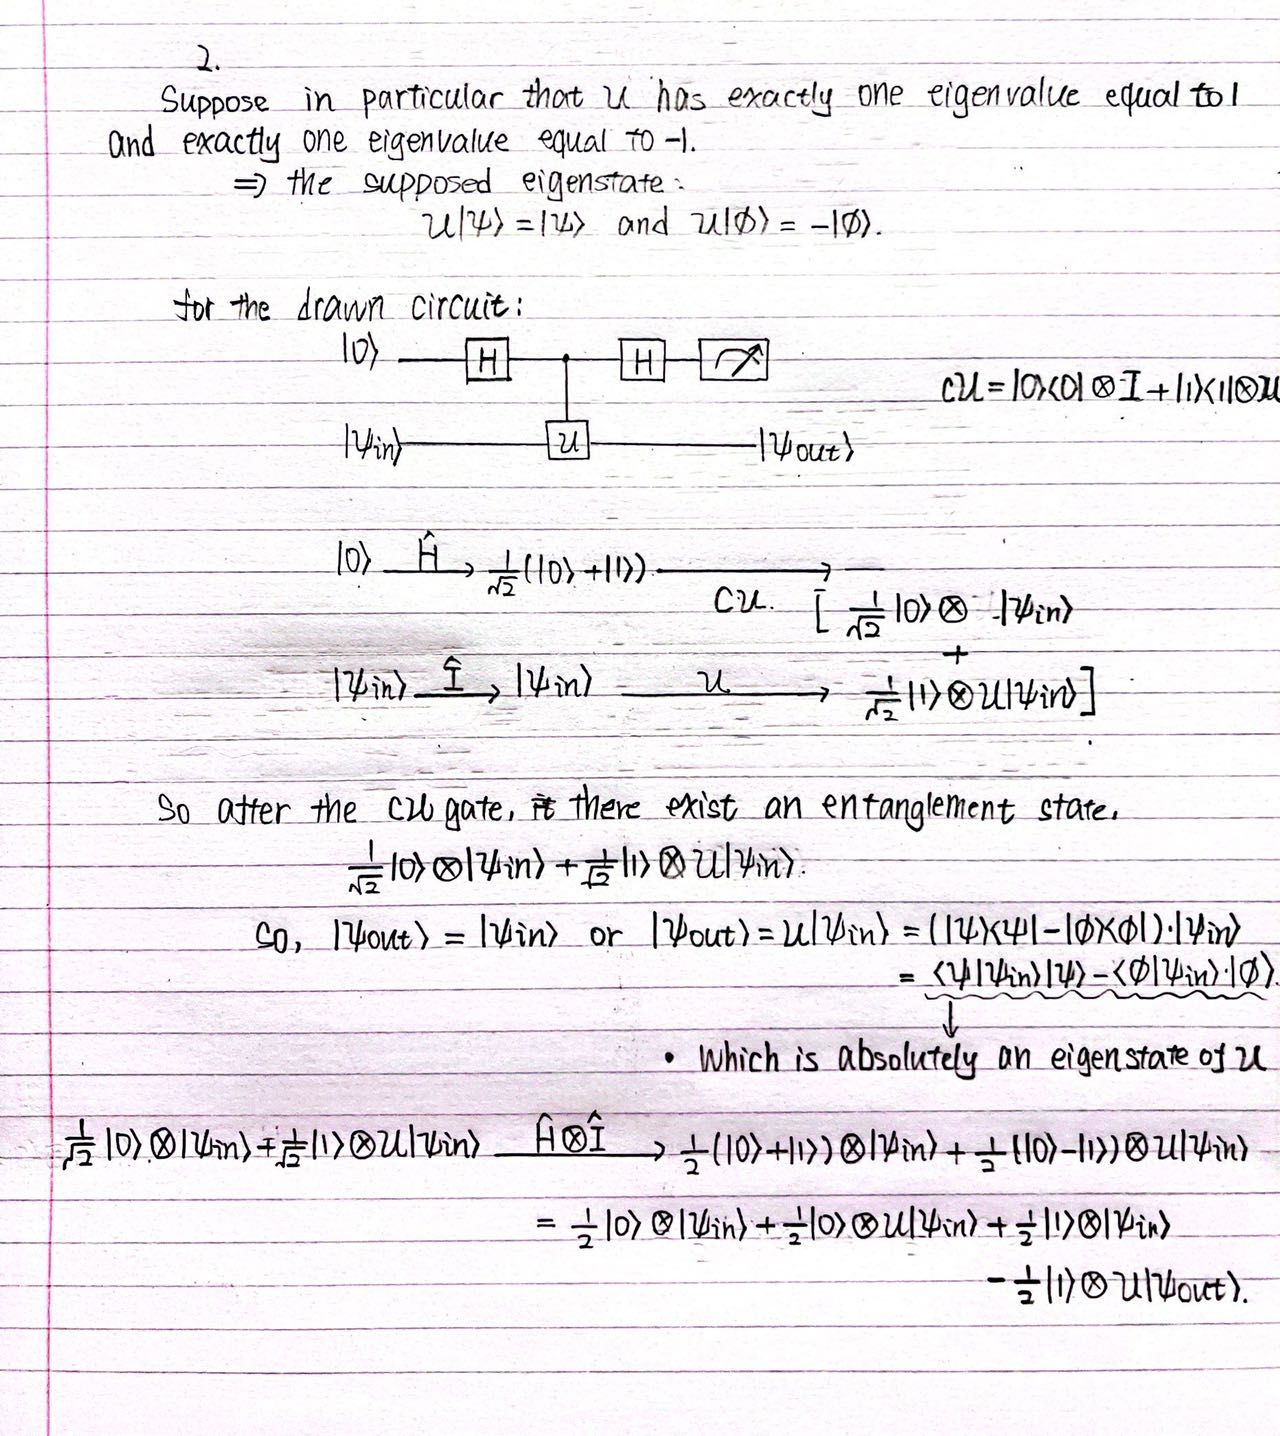 2.
Suppose in particular that U has exactly one eigenvalue equal to 1
and exactly one eigenvalue equal to -1.
⇒ the supposed eigenstate:
U|ψ⟩ = |ψ⟩ and U|ϕ⟩ = -|ϕ⟩.
for the drawn circuit:
|0⟩ H H
CU = |0⟩⟨0| ⊗ I + |1⟩⟨1| ⊗ U
|ψin⟩ U |ψout⟩
|0⟩ Ĥ → 1/√2 (|0⟩ + |1⟩) → CU. [ 1/√2 |0⟩ ⊗ |ψin⟩
+
|ψin⟩ Î → |ψin⟩ U → 1/√2 |1⟩ ⊗ U|ψin⟩ ]
So after the CU gate, there exist an entanglement state.
1/√2 |0⟩ ⊗ |ψin⟩ + 1/√2 |1⟩ ⊗ U|ψin⟩.
So, |ψout⟩ = |ψin⟩ or |ψout⟩ = U|ψin⟩ = (|ψ⟩⟨ψ| - |ϕ⟩⟨ϕ|)·|ψin⟩
= ⟨ψ|ψin⟩|ψ⟩ - ⟨ϕ|ψin⟩·|ϕ⟩.
↓
• Which is absolutely an eigenstate of U
1/√2 |0⟩ ⊗ |ψin⟩ + 1/√2 |1⟩ ⊗ U|ψin⟩ Ĥ⊗Î → 1/2 (|0⟩ + |1⟩) ⊗ |ψin⟩ + 1/2 (|0⟩ - |1⟩) ⊗ U|ψin⟩
= 1/2 |0⟩ ⊗ |ψin⟩ + 1/2 |0⟩ ⊗ U|ψin⟩ + 1/2 |1⟩ ⊗ |ψin⟩
- 1/2 |1⟩ ⊗ U|ψout⟩.